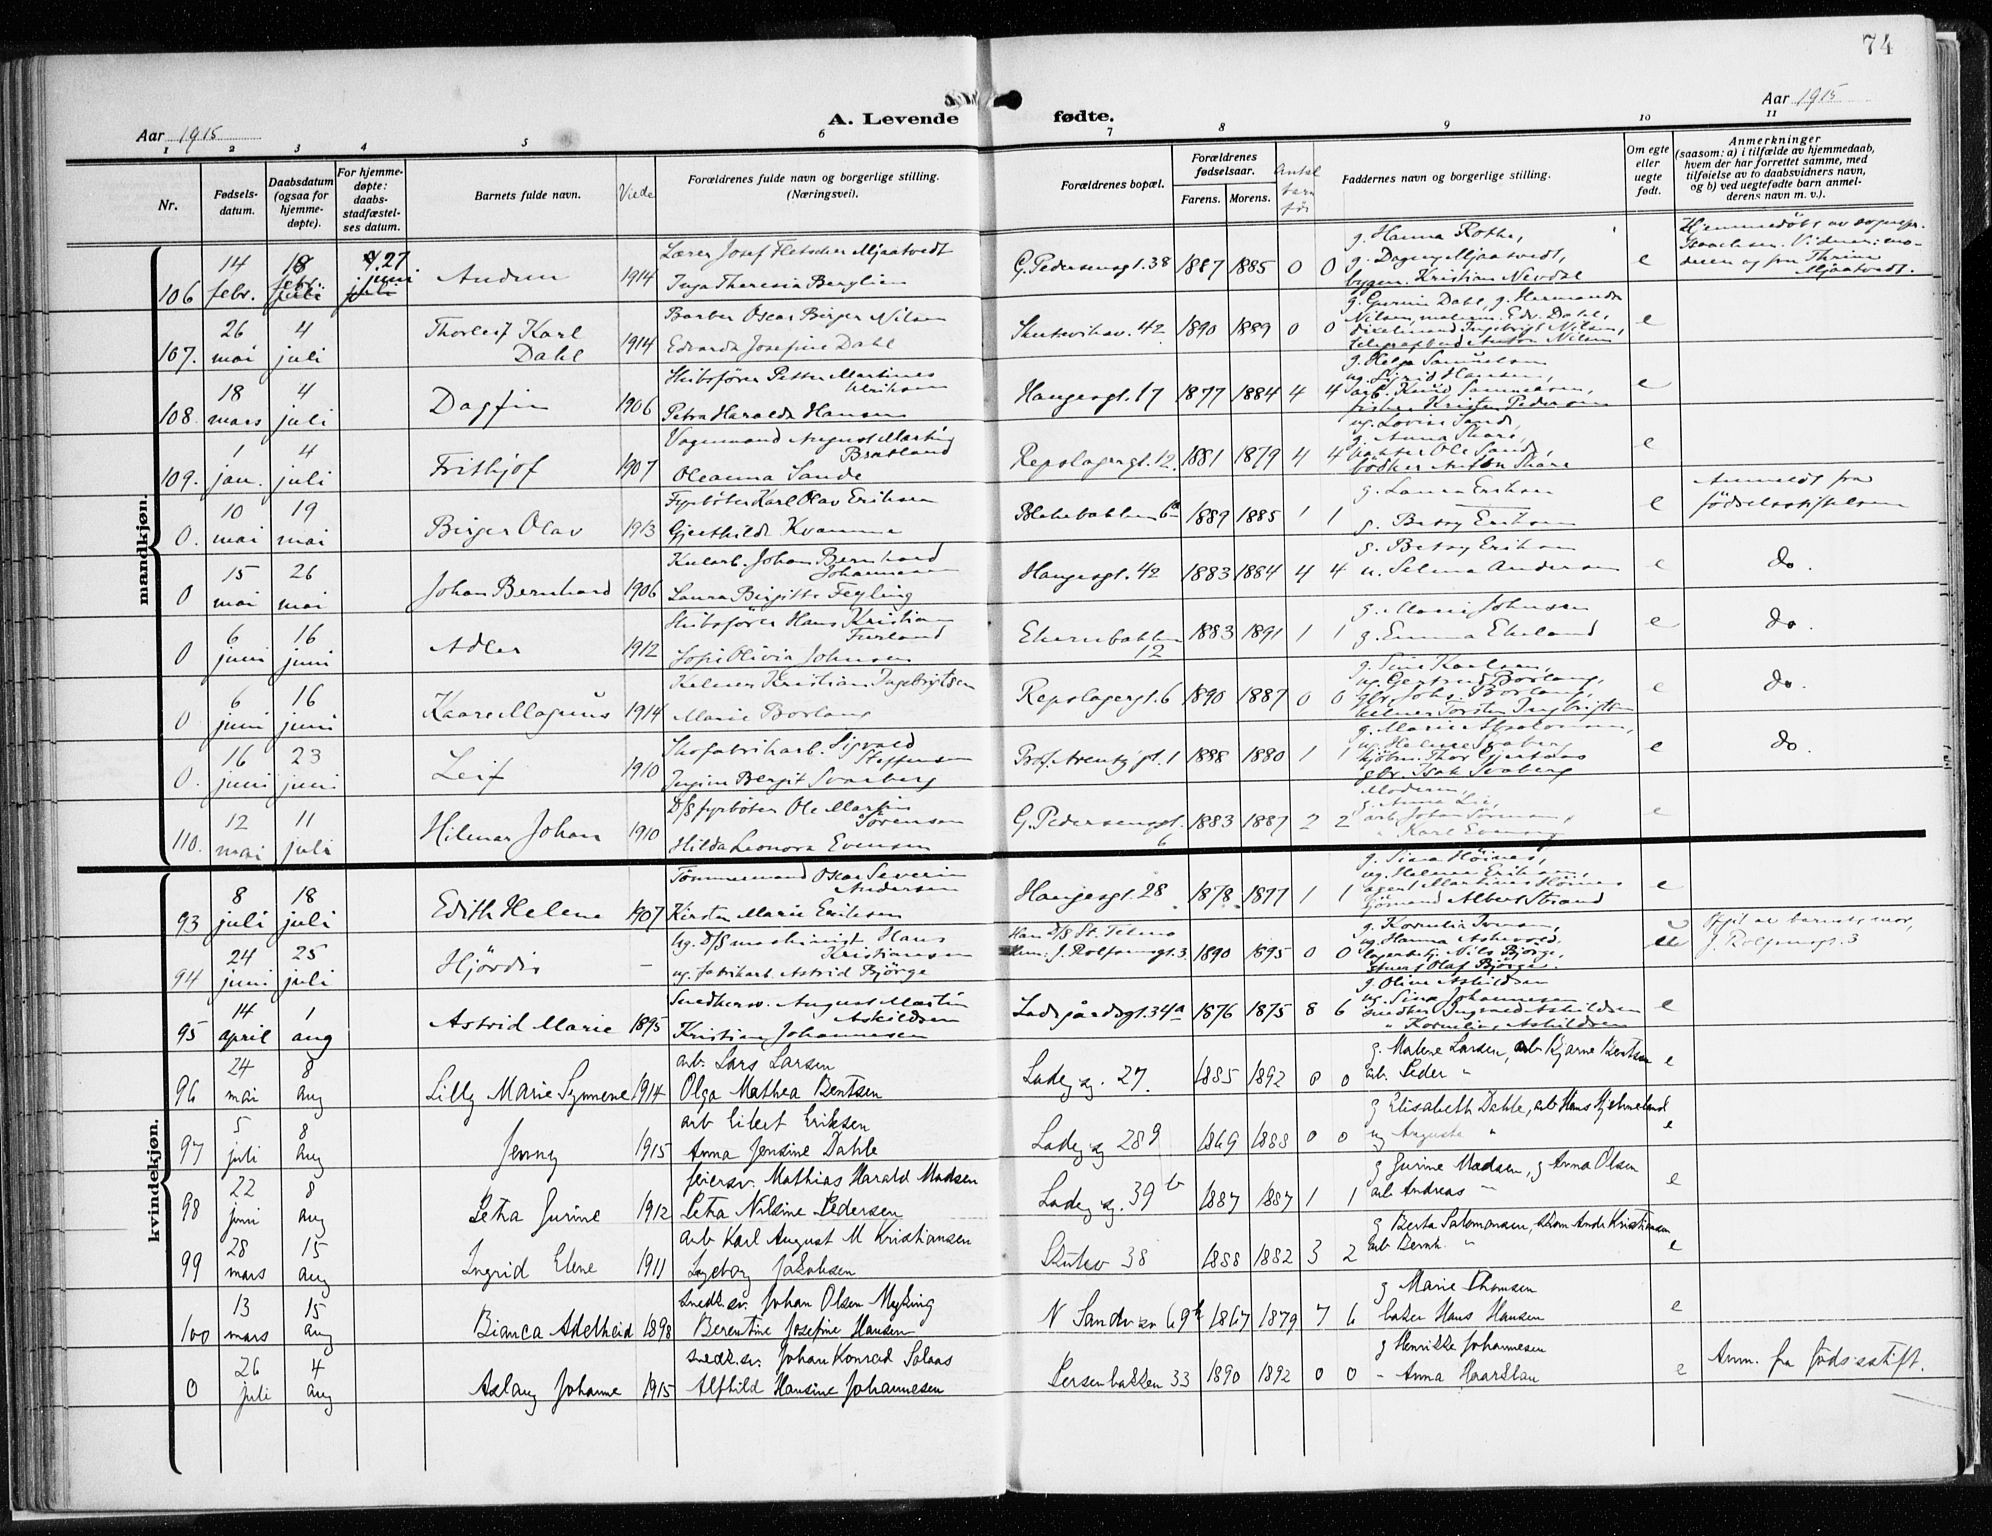 74
Aar 1915
A. Levende fødte.
Aar 1915
1 2 3 4 5 6 7 8 9 10 11
Nr.
Fødsels-
datum.
Daabsdatum
(ogsaa for
hjemme-
døpte).
For hjemme-
døpte:
daabs-
stadfæstel-
ses datum.
Barnets fulde navn.
Viede
Forældrenes fulde navn og borgerlige stilling.
(Næringsveil).
Forældrenes bopæl.
Forældrenes
fødselsaar.
Farens. Morens.
Antal
barn
før
Faddernes navn og borgerlige stilling.
Om egte
eller
uegte
født.
Anmerkninger
(saasom: a) i tilfælde av hjemmedaab,
hvem der har forrettet samme, med
tilføielse av to daabsvidners navn,
og b) ved uegtefødte barn anmel-
derens navn m. v.).
mandkjøn.
106 14 febr. 18 febr. 27 juni
1914
Lærer Josef Fletscher Mjaatvedt
Inga Theresia Berglien
G. Pedersensgt. 38 1887 1885 0 0
g. Hanna Rothe,
g. Dagny Mjaatvedt,
bygm. Kristian Nevdal
e
Mjaatvedt.
107. 26 mai 4 juli
Thorleif Karl
Dahl
1914
Barber Oscar Birger Nilsen
Edvarda Josefine Dahl
Skuteviksv. 42 1890 1889 0 0
g. Gurine Dahl, g. Hermanda
Nilsen, Edv. Dahl,
Ingebrigt Nilsen,
Anton Nilsen
e
108. 18 mars 4 juli
Dagfin
1906
Skibsfører Petter Martines
Ulriksen
Petra Haralda Hansen
Haugesgt. 17 1877 1884 4 4
g. Helga Samuelsen
ug. Sigrid Hansen,
arb. Knud Samuelsen,
fisker Kristen Pedersen
e
109. 1 jan. 4 juli
Frithjof
1907
Vognmand August Martin
Bratland
Oleanna Sande
Repslagergt. 12. 1881 1879 4 4
ug. Lovise Sande,
g. Anna Skare,
Ole Sande,
bødker Anton Skare
e
0. 10 mai 19 mai
Birger Olav
1913
Fyrbøter Karl Olav Eriksen
Gjerthilde Kvamme
Blekebakken 6a 1889 1885 1 1
g. Laura Eriksen
g. Betsy Eriksen
e
Anmeldt fra
fødselsstiftelsen
0 15 mai 26 mai
Johan Bernhard
1906
Kularb. Johan Bernhard
Johannesen
Laura Birgitte Fegling
Haugesgt. 42 1883 1884 4 4
g. Betsy Eriksen
u. Selma Andersen
e
do.
0 6 juni 16 juni
Adler
1912
Skibsfører Hans Kristian
Furland
Sofie Olivia Johnsen
Ekernbakken
12
1883 1891 1 1
g. Marie Johnsen
g. Emma Ekeland
e
do.
0 6 juni 16 juni
Kaare Magnus
1914
Kelner Kristian Ingebrigtsen
Marie Borlaug
Repslagergt. 6 1890 1887 0 0
g. Sine Karlsen,
ug. Gertrud Borlaug,
Johs. Borlaug,
kelner Torsten Ingebrigtsen
e
do.
0. 16 juni 23 juni
Leif
1910
Skofabrikarb. Sigvald
Steffensen
Ingine Bergit Svarberg
Prof. Arentz' gt. 1 1888 1880 1 1
g. Marie Absalonsen,
kjøbm. Thor Gjertsaas
Isak Svaberg
e
do.
110. 12 mai 11 juli
Hilmar Johan
1910
D/S fyrbøter Ole Martin
Sørensen
Hilda Leonora Evensen
G. Pedersensgt.
6
1883 1887 2 2
Moderen,
g. Anna Lie,
arb. Johan Sørensen,
" Karl Evensen
e
kvindekjøn.
93 8 juli 18 juli
Edith Helene
1907
Tømmermand Oscar Severin
Andersen
Kirsten Marie Eriksen
Haugesgt. 28 1878 1877 1 1
g. Sina Høines,
ug. Helene Eriksen,
agent Martinus Høines
sjømand Albert Strand
e
94 24 juni 25 juli
Hjördis
–
ug. D/S maskinist Hans
Kristiansen
ug. fabrikarb. Astrid Bjørge
Han D/S St. Telmo
Hun: J. Rolfsensgt. 3. 1890 1895 0 0
g. Kornelia Iversen,
ug. Hanna Askevold,
Nils Bjørge,
Olaf Bjørge.
u
Opgit av barnets mor,
J. Rolfsensgt. 3
95 14 april 1 aug
Astrid Marie
1895
Snedkersv. August Martin
Askildsen
Kristian Johannesen
Ladegårdsgt. 34a 1876 1875 8 6
g. Oline Askildsen
ug. Sina Johannesen
snedker Ingvald Askildsen
" Kornelius Askildsen
e
96 24 mai 8 aug
Lilly Marie Synnene
1914
arb. Lars Larsen
Olga Mathea Bentsen
Ladegg. 27. 1885 1892 0 0
g. Malene Larsen, arb Bjarne Bentsen
arb. Peder "
e
97 5 juli 8 aug
Jenny
1915
arb Eilert Eriksen
Anna Jensine Dahle
Ladegg 28 1869 1888 0 0
g Elisabeth Dahle, arb Hans Hjelmeland
ug Augusta "
e
98 22 juni 8 aug
Petra Gurine
1912
feiersv. Mathias Harald Madsen
Petra Nilsine Pedersen
Ladegg. 39 b 1887 1887 1 1
g Gurine Madsen, g Anna Olsen
arb Andreas "
e
99 28 mars 15 aug
Ingrid Elene
1911
arb Karl August M Kristiansen
Ingeborg Jakobsen
Skutev 38 1888 1882 3 2
g Berta Salomonsen, skom Andr Kristiansen
arb Bernh. "
e
100 13 mars 15 aug
Bianca Adelheid
1898
snedk.sv. Johan Olsen Myking
Berentine Josefine Hansen
N Sandvksv 69b 1867 1879 7 6
g Marie Thomsen
baker Hans Hansen
e
0 26 juli 4 aug
Aslaug Johanne
1915
snedk.sv. Johan Konrad Salaas
Alfhild Hansine Johannesen
Persenbakken 33 1890 1892 0 0
g Henrikke Johannesen
- Anna Haarklau
e
Anm. fra fødsesstift.